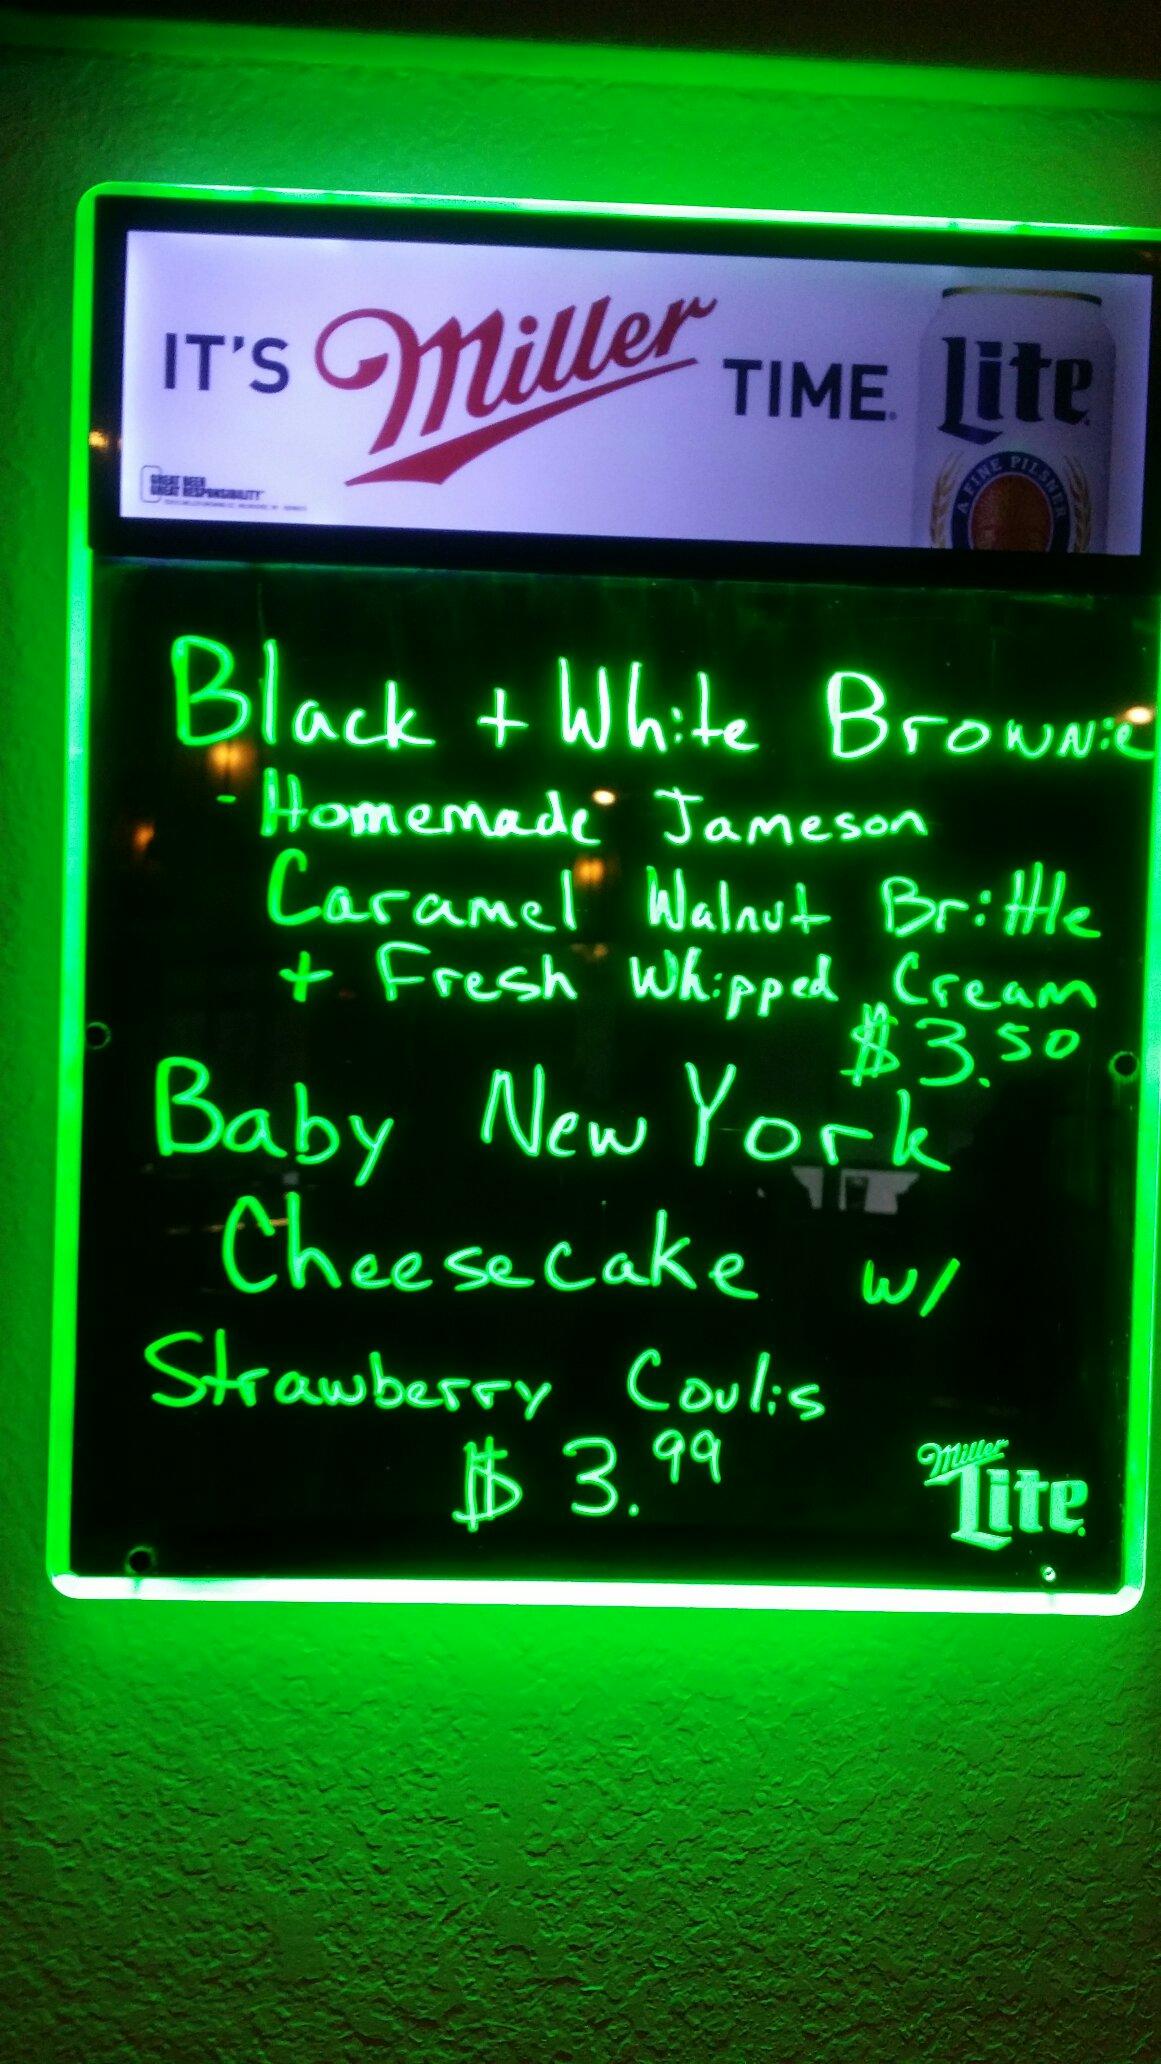 IT'S Miller TIME. Lite
A FINE PILSNER
GREAT BEER
GREAT RESPONSIBILITY
Black + White Brownie
- Homemade Jameson
Caramel Walnut Brittle
+ Fresh Whipped Cream
$3.50
Baby New York
Cheesecake w/
Strawberry Coulis
$3.99
Miller
Lite